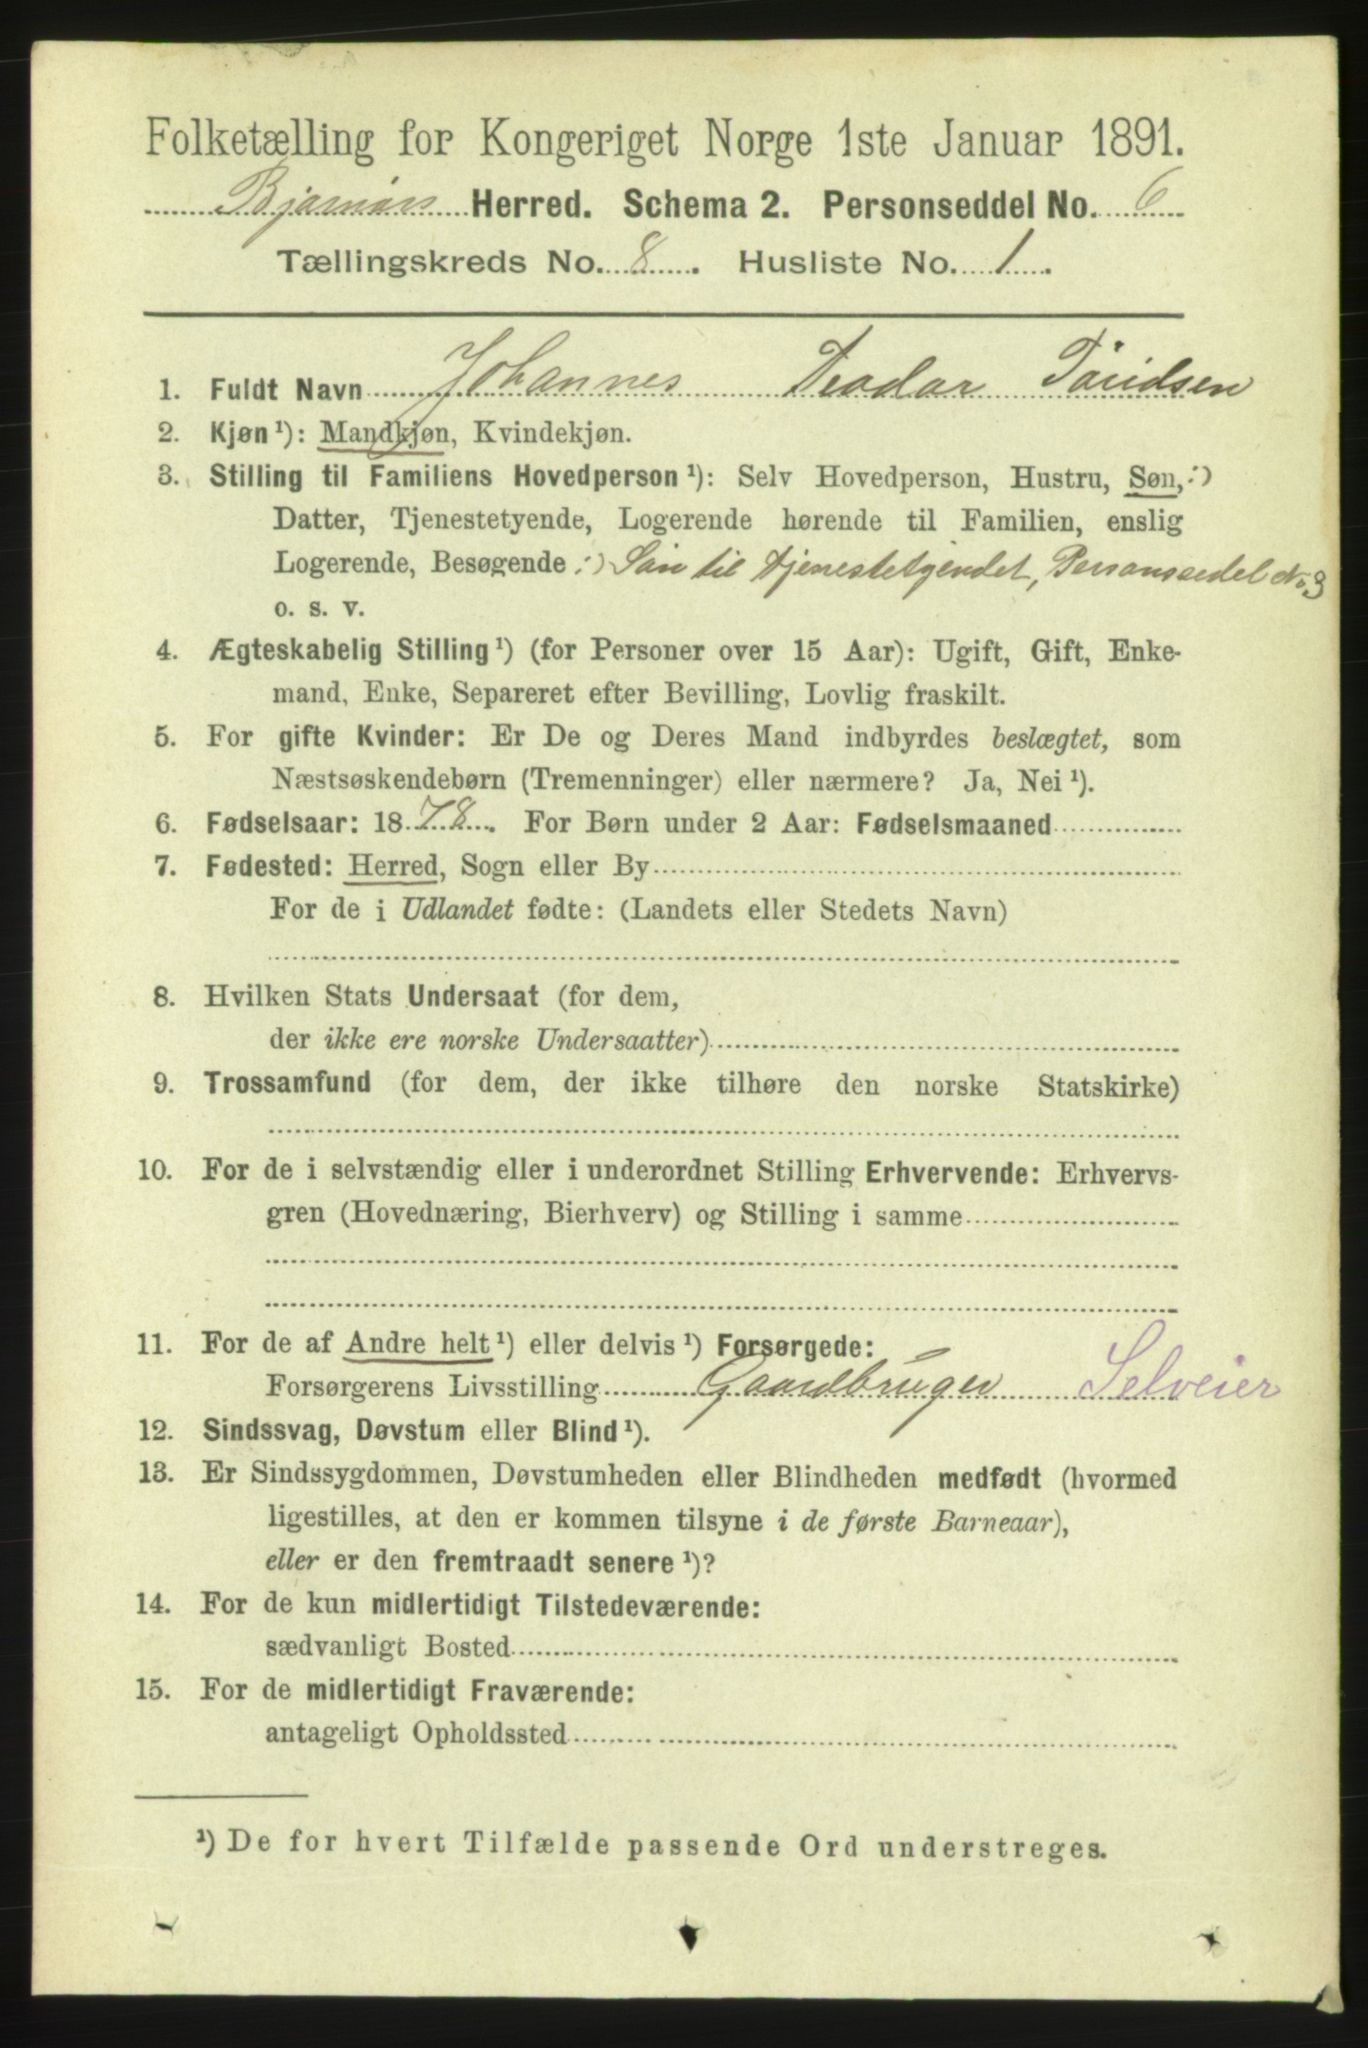 Folketælling for Kongeriget Norge 1ste Januar 1891.
Bjarnørs Herred. Schema 2. Personseddel No. 6
Tællingskreds No. 8. Husliste No. 1.
1. Fuldt Navn Johannes Teodor
2. Kjøn¹): Mandkjøn, Kvindekjøn.
3. Stilling til Familiens Hovedperson¹): Selv Hovedperson, Hustru, Søn, :)
Datter, Tjenestetyende, Logerende hørende til Familien, enslig
Logerende, Besøgende :) Søn til Tjenestetyendet, Personseedel No 3
o. s. v.
4. Ægteskabelig Stilling¹) (for Personer over 15 Aar): Ugift, Gift, Enke-
mand, Enke, Separeret efter Bevilling, Lovlig fraskilt.
5. For gifte Kvinder: Er De og Deres Mand indbyrdes beslægtet, som
Næstsøskendebørn (Tremenninger) eller nærmere? Ja, Nei¹).
6. Fødselsaar: 1878. For Børn under 2 Aar: Fødselsmaaned
7. Fødested: Herred, Sogn eller By
For de i Udlandet fødte: (Landets eller Stedets Navn)
8. Hvilken Stats Undersaat (for dem,
der ikke ere norske Undersaatter)
9. Trossamfund (for dem, der ikke tilhøre den norske Statskirke)
10. For de i selvstændig eller i underordnet Stilling Erhvervende: Erhvervs-
gren (Hovednæring, Bierhverv) og Stilling i samme
11. For de af Andre helt¹) eller delvis¹) Forsørgede:
Forsørgerens Livsstilling Gaardbruger Selveier
12. Sindssvag, Døvstum eller Blind¹).
13. Er Sindssygdommen, Døvstumheden eller Blindheden medfødt (hvormed
ligestilles, at den er kommen tilsyne i de første Barneaar),
eller er den fremtraadt senere¹)?
14. For de kun midlertidigt Tilstedeværende:
sædvanligt Bosted
15. For de midlertidigt Fraværende:
antageligt Opholdssted
¹) De for hvert Tilfælde passende Ord understreges.